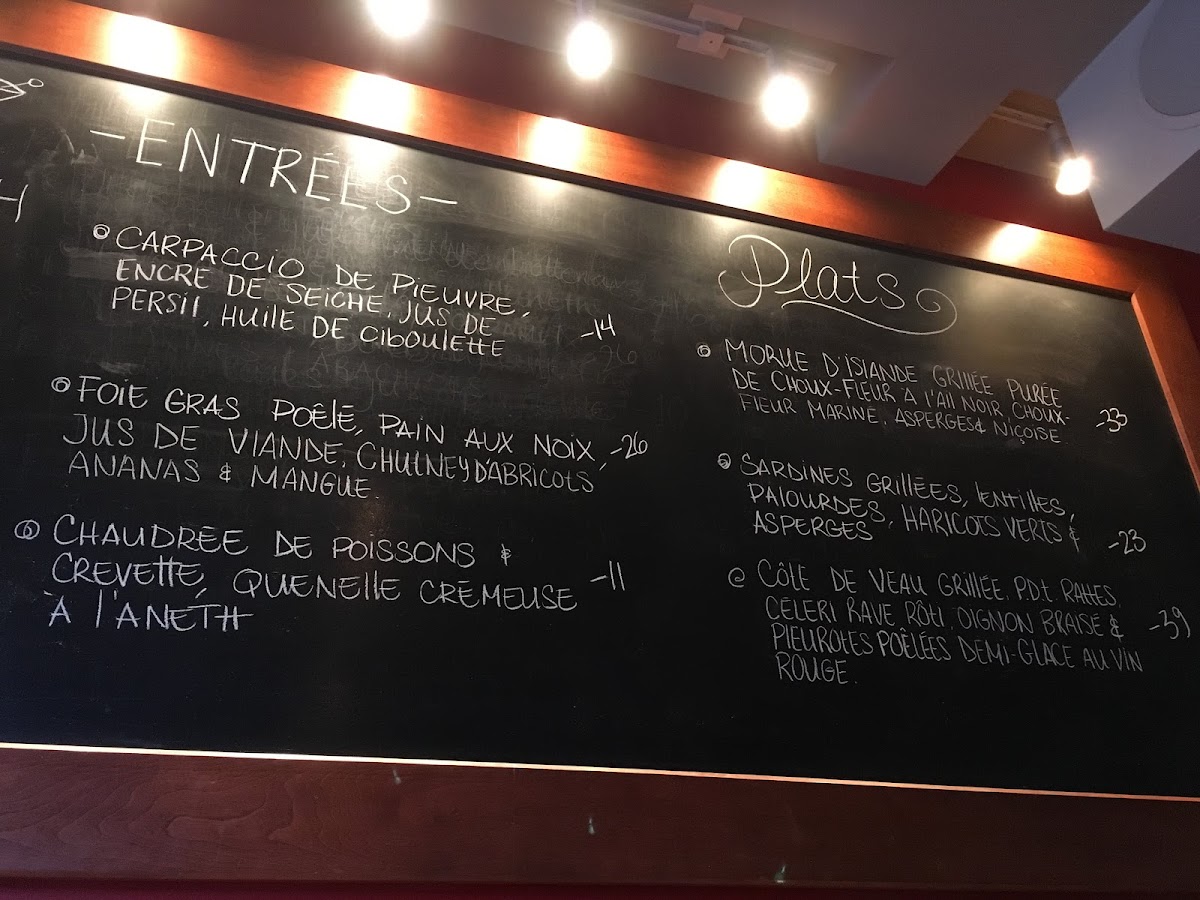 - ENTRÉES -
CARPACCIO DE PIEUVRE,
ENCRE DE SEICHE, JUS DE
PERSIL, HUILE DE CIBOULETTE -14
FOIE GRAS POÊLÉ, PAIN AUX NOIX,
JUS DE VIANDE, CHUTNEY D'ABRICOTS, -26
ANANAS & MANGUE.
CHAUDRÉE DE POISSONS &
CREVETTE, QUENELLE CRÉMEUSE -11
À L'ANETH
Plats
MORUE D'ISLANDE GRILLÉE, PURÉE
DE CHOUX-FLEUR À L'AIL NOIR, CHOUX-
FLEUR MARINÉ, ASPERGES & NIÇOISE. -33
SARDINES GRILLÉES, LENTILLES,
PALOURDES, HARICOTS VERTS &
ASPERGES -23
CÔTE DE VEAU GRILLÉE, PDT. RATTES,
CÉLERI RAVE RÔTI, OIGNON BRAISÉ & -39
PLEUROTES POÊLÉES DEMI-GLACE AU VIN
ROUGE.